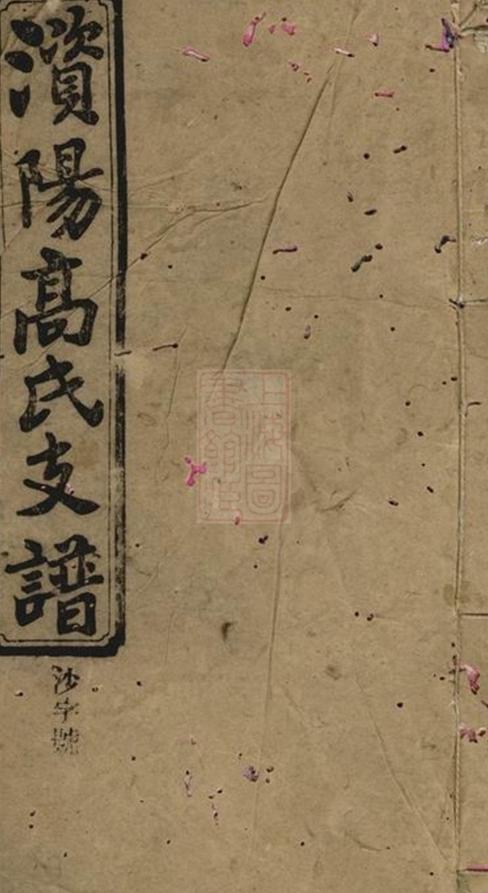 濱陽高氏支譜
沙字號
上海圖
書館藏